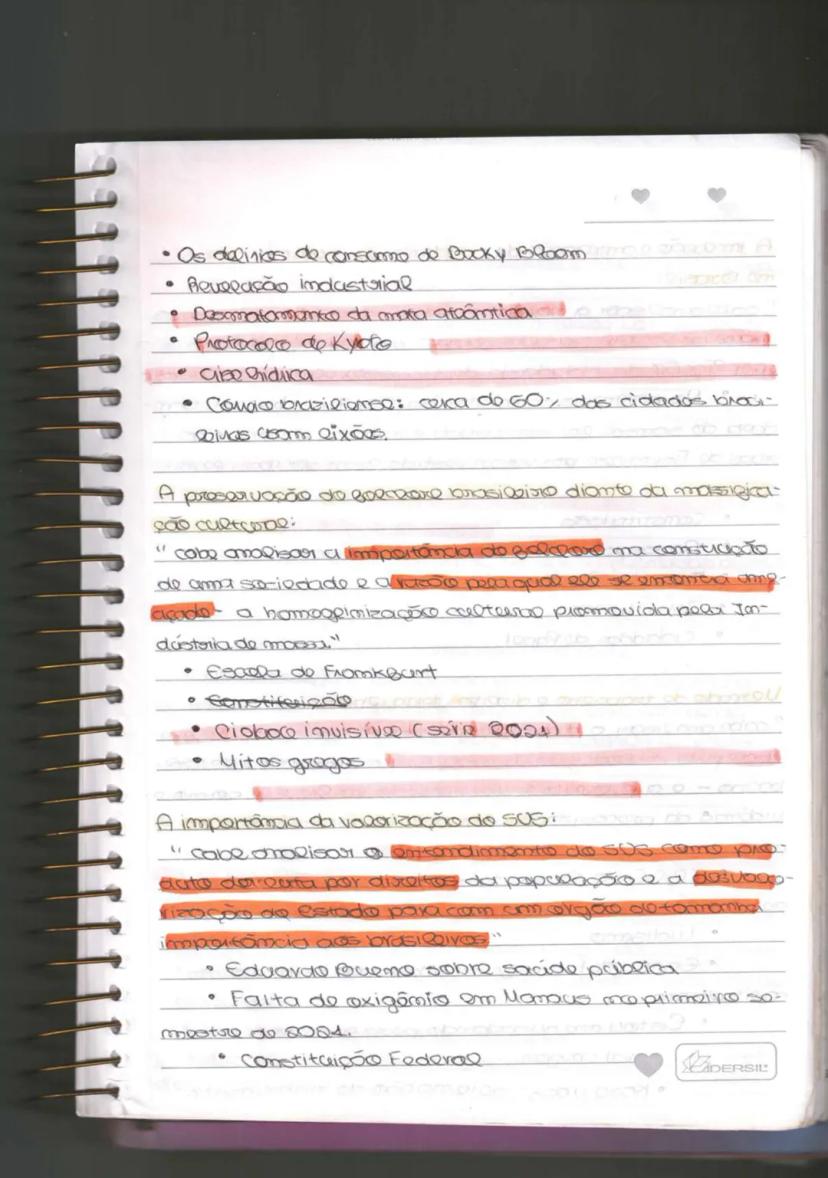 • Os delírios de consumo de Becky Bloom
• Revolução industrial
• Desmatamento da mata atlântica
• Protocolo de Kyoto
• Crise hídrica
• Correio braziliense: cerca de 60% das cidades brasi-
leiras usam lixões.
A preservação do folclore brasileiro diante da massifica-
ção cultural:
" cabe analisar a importância do folclore na construção
de uma sociedade e a razão pela qual ele se encontra ame-
açado - a homogeinização cultural promovida pela In-
dústria de massa."
• Escola de Frankfurt
• Constituição
• Cidade invisível (série 2021)
• Mitos gregos
A importância da valorização do SUS:
" cabe analisar o entendimento do SUS como pro-
duto da luta por direitos da população e a desvalo-
rização do Estado para com um orgão de tamanha
importância aos brasileiros"
• Eduardo Bueno sobre saúde pública
• Falta de oxigênio em Manaus no primeiro se-
mestre de 2021.
• Constituição Federal